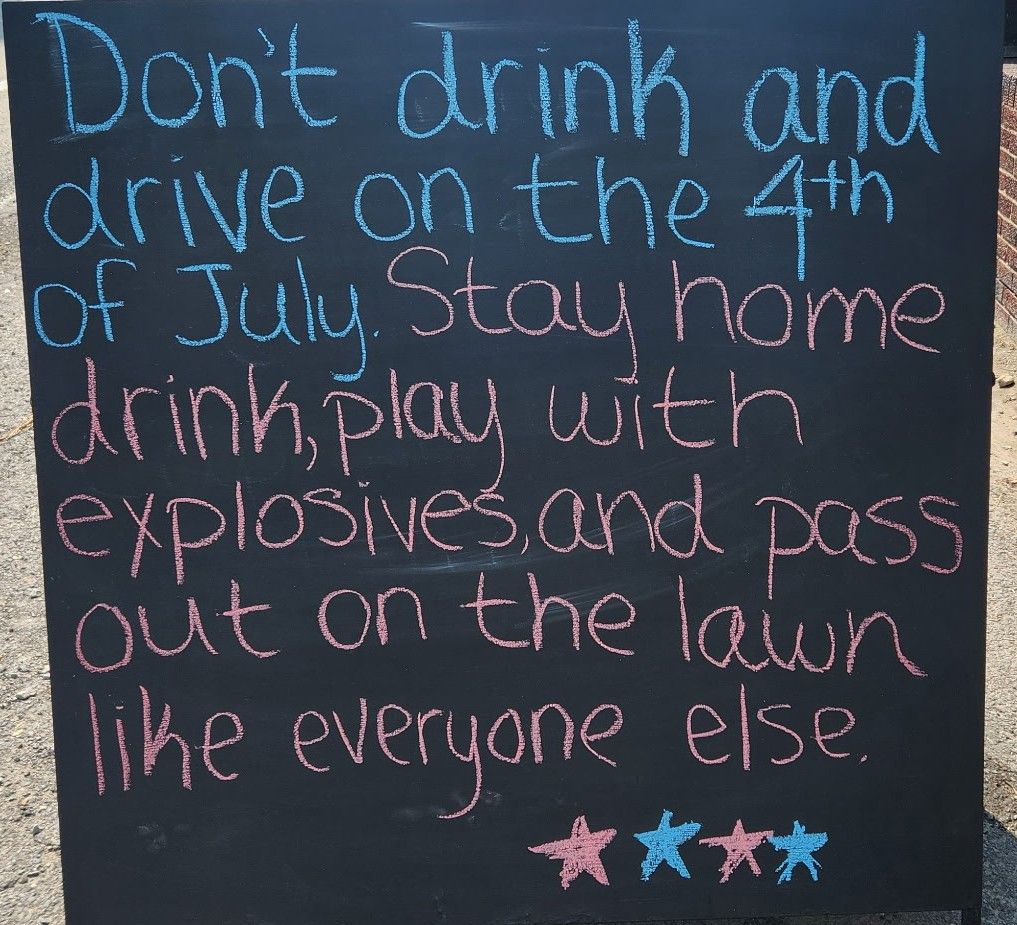 Don't drink and
drive on the 4th
of July. Stay home
drink, play with
explosives, and pass
out on the lawn
like everyone else.